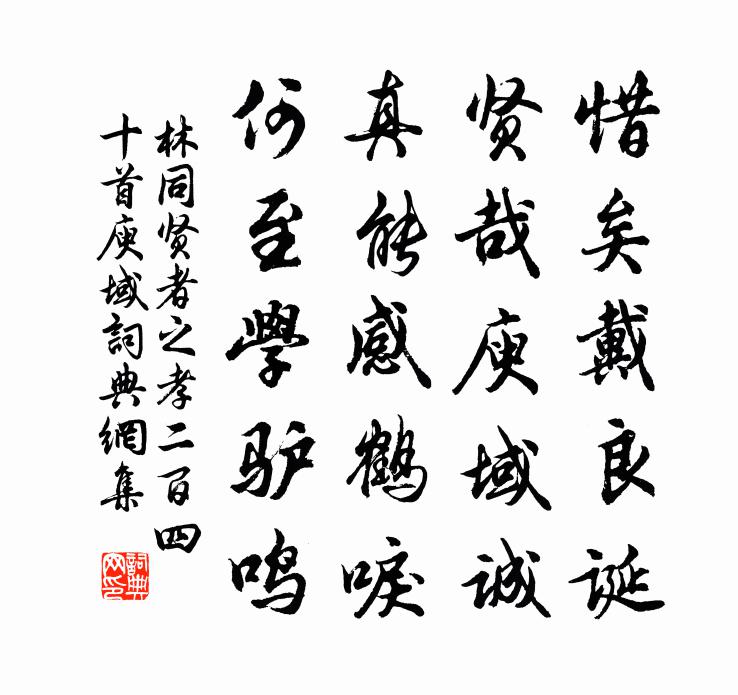 惜矣戴良诞
贤哉庾域诚
真能感鹤唳
何至學驴鸣
林同贤者之孝二百四
十首庾域詞典網集
詞典
网印